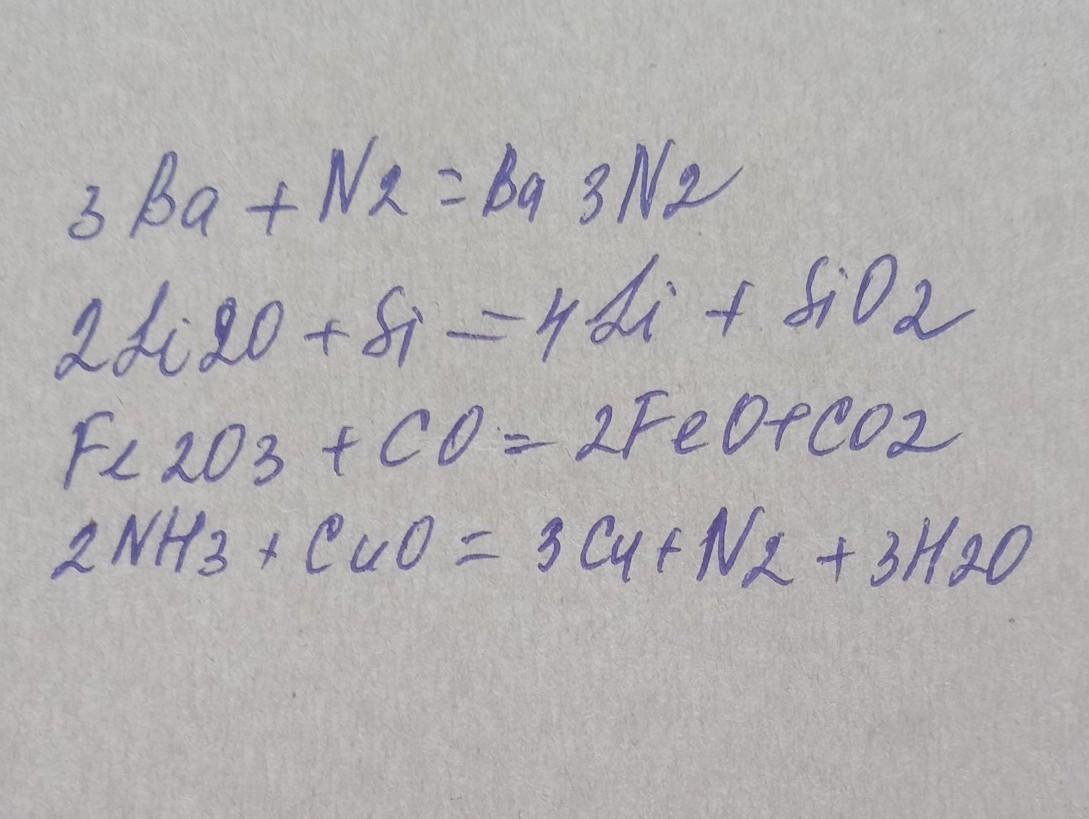 3Ba + N2 = Ba3N2
2Li2O + Si = 4Li + SiO2
Fe2O3 + CO = 2FeO + CO2
2NH3 + CuO = 3Cu + N2 + 3H2O